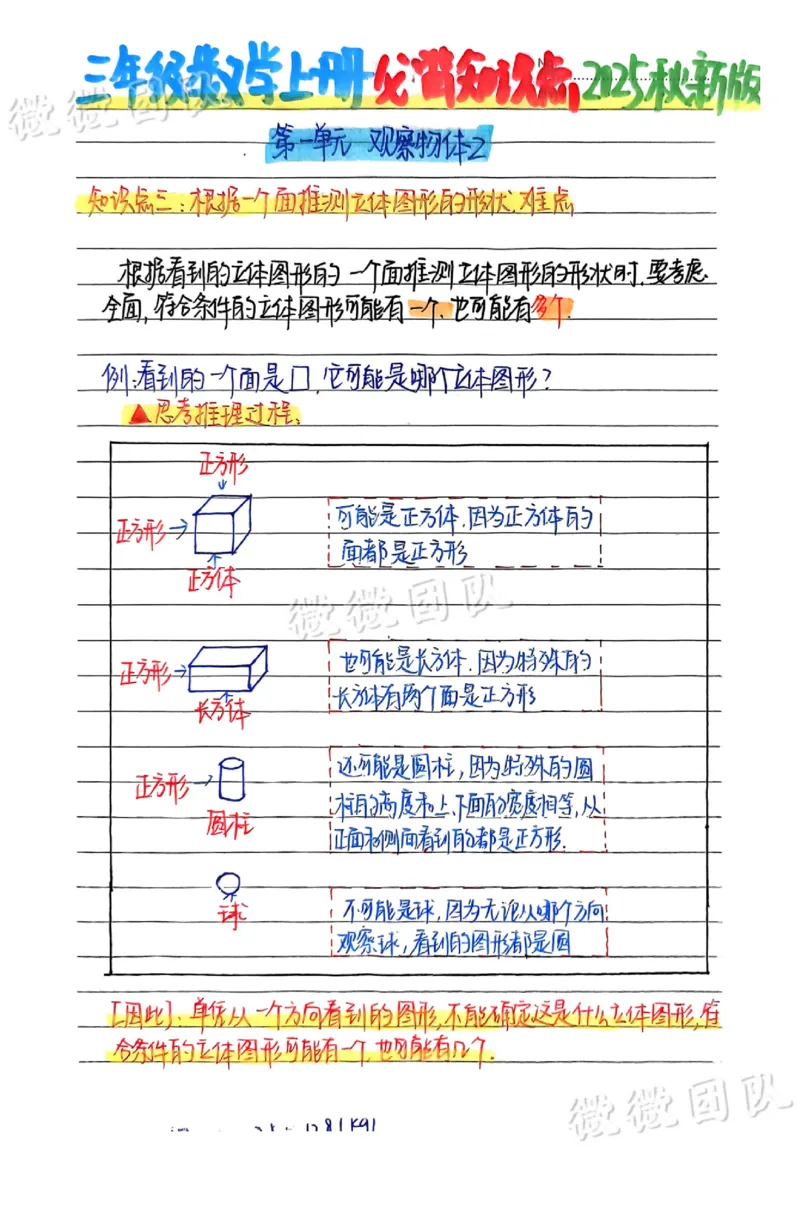 三年级数学上册必背知识点 2025秋新版
微微团队
第一单元 观察物体2
知识点三:根据一个面推测立体图形的形状.难点
根据看到的立体图形的一个面推测立体图形的形状时,要考虑
全面,符合条件的立体图形可能有一个,也可能有多个.
例:看到的一个面是□,它可能是哪个立体图形?
▲思考推理过程:
正方形
正方形
正方体
可能是正方体,因为正方体的
面都是正方形
微微团队
正方形
长方体
也可能是长方体,因为特殊的
长方体有两个面是正方形
正方形
圆柱
还可能是圆柱,因为特殊的圆
柱的高度和上、下面的宽度相等,从
正面和侧面看到的都是正方形.
球
不可能是球,因为无论从哪个方向
观察球,看到的图形都是圆
[因此]:单凭从一个方向看到的图形,不能确定这是什么立体图形,符
合条件的立体图形可能有一个,也可能有几个.
微微团队